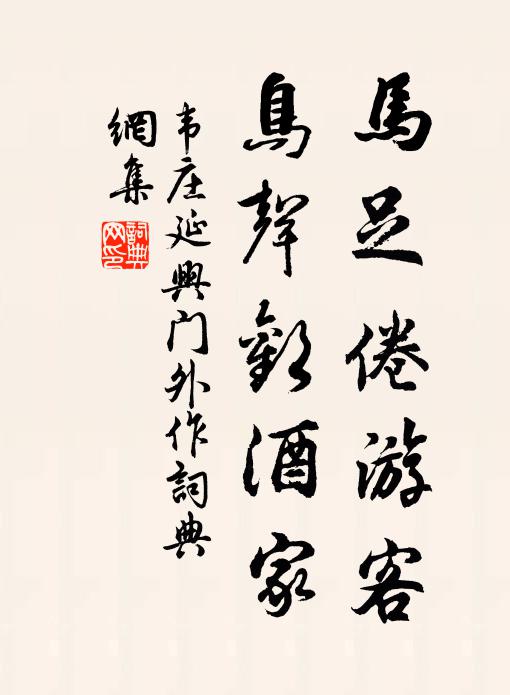 馬足倦游客
鳥聲歡酒家
韦庄延興門外作詞典
網集
詞典
网印